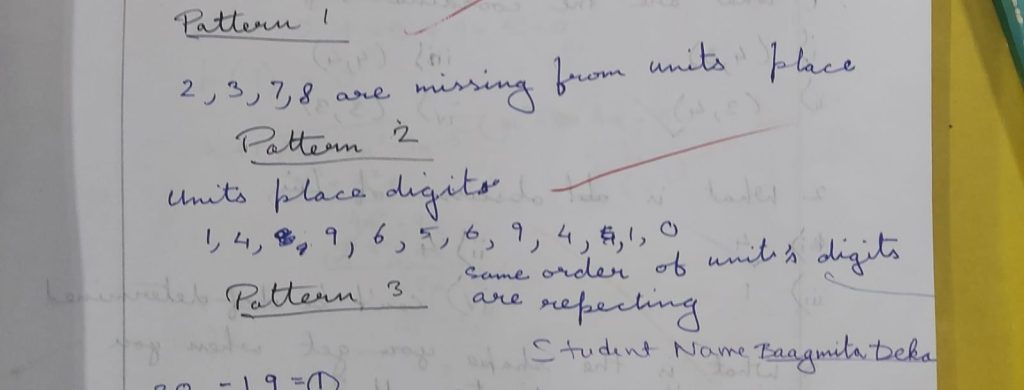 Pattern 1
2, 3, 7, 8 are missing from units place
Pattern 2
Units place digits
1, 4, 9, 6, 5, 6, 9, 4, 1, 0
same order of unit's digits
Pattern 3 are repecting
Student Name Baagmita Deka
20 - 19 = 1